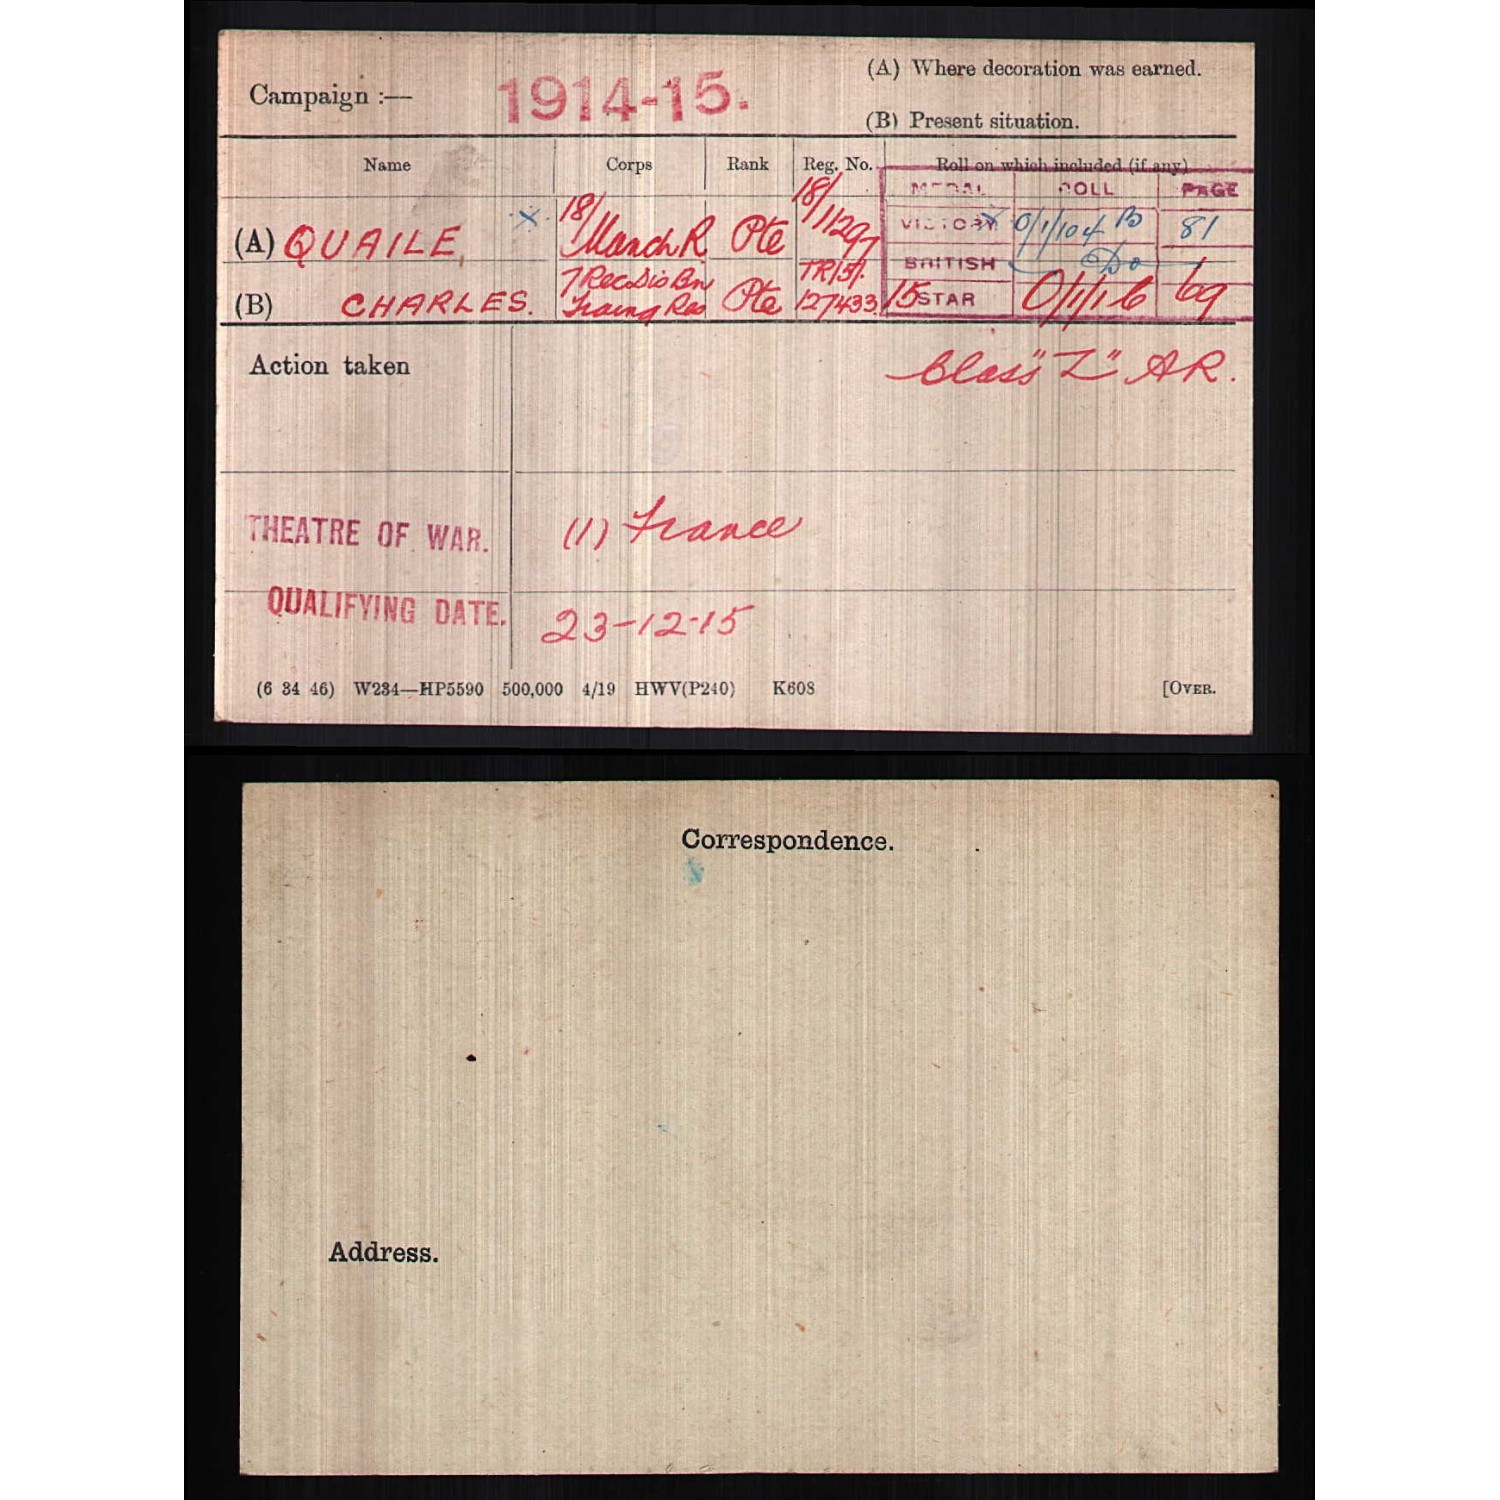 Campaign :— 1914-15.
(A) Where decoration was earned.
(B) Present situation.
Name Corps Rank Reg. No. Roll on which included (if any)
MEDAL ROLL PAGE
(A) QUAILE, X. 18/ Manch R Pte 18/11297 VICTORY X 0/1/104 B 81
BRITISH Do
(B) CHARLES. 7 Rec Dis Bn Traing Res Pte TR/51. 127433. 15 STAR 0/1/1 6 69
Action taken
Class "Z" AR.
THEATRE OF WAR. (1) France
QUALIFYING DATE. 23-12-15
(6 34 46) W234—HP5590 500,000 4/19 HWV(P240) K608 [OVER.
Correspondence.
Address.